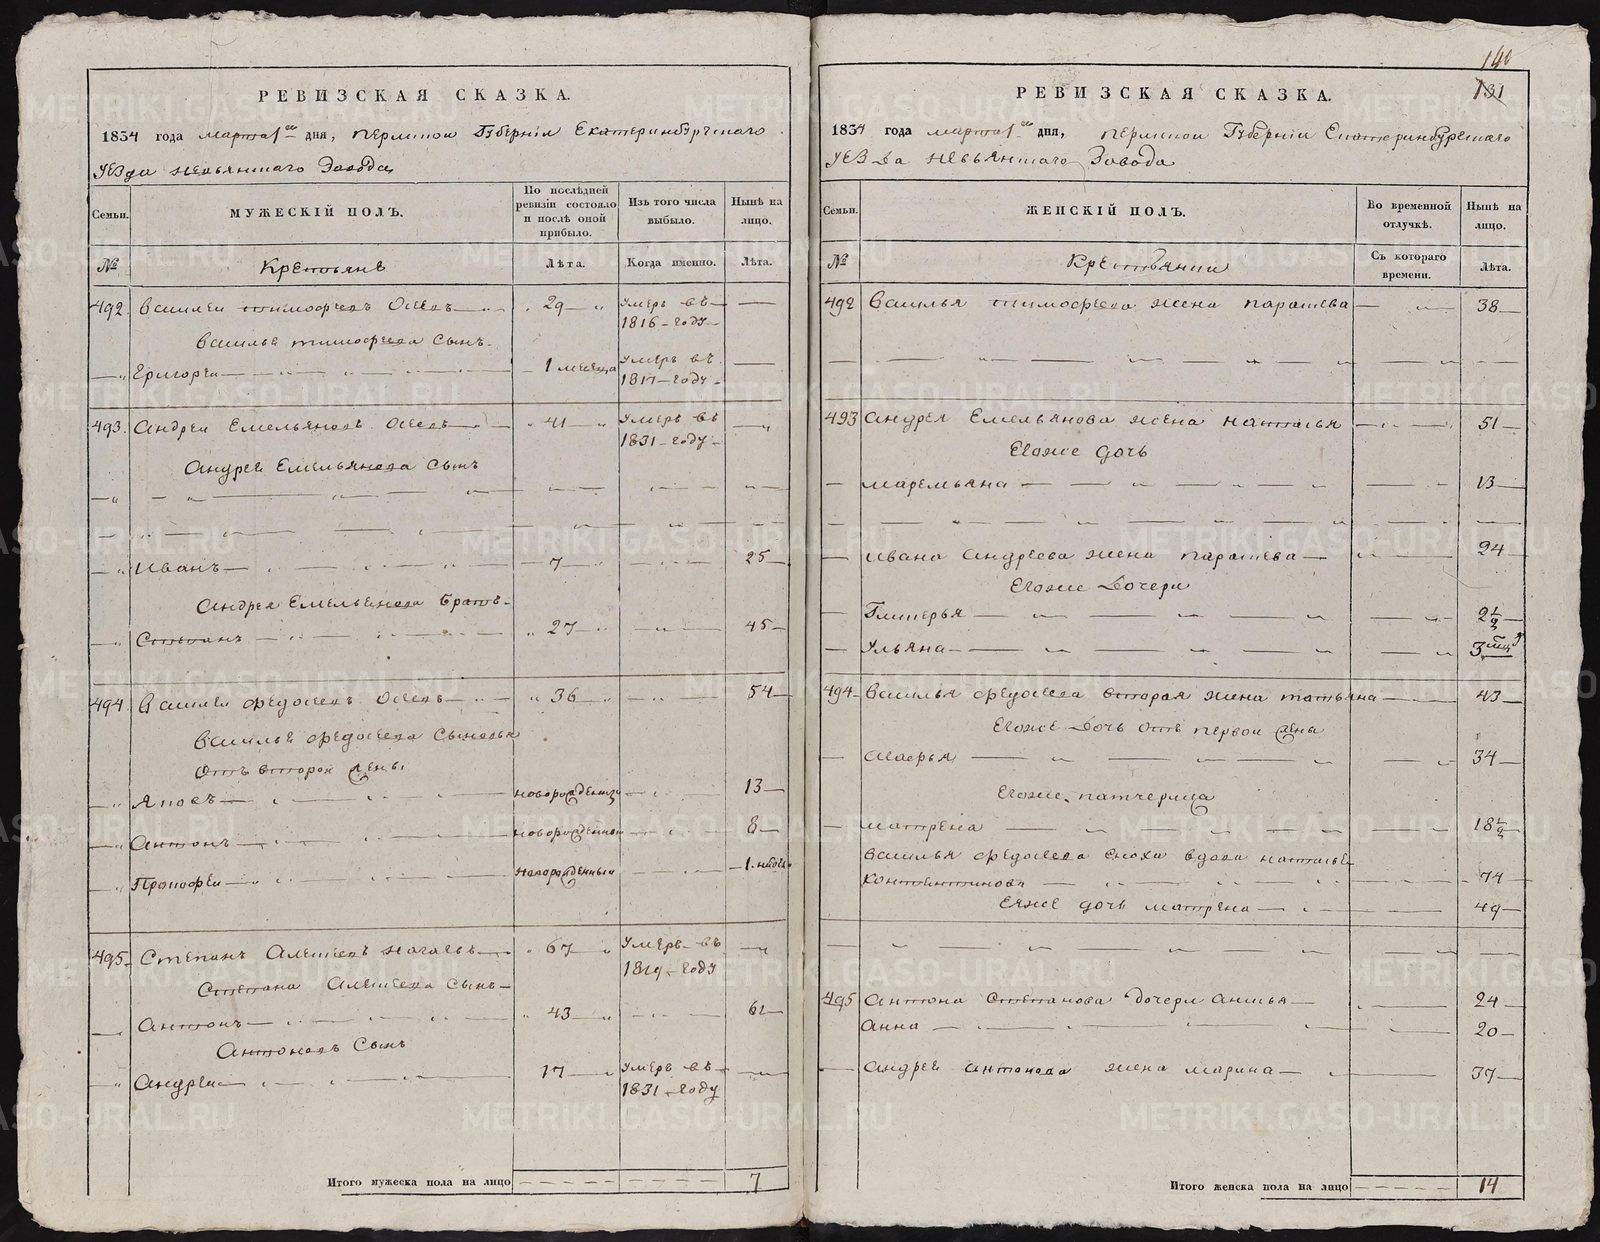 РЕВИЗСКАЯ СКАЗКА.
1834 года марта 1 го дня, пермской Губерніи Екатеринбургскаго
уезда невьянскаго Завода
Семьи.
МУЖЕСКІЙ ПОЛЪ.
По послѣдней ревизіи состояло и послѣ оной прибыло.
Изъ того числа выбыло.
Нынѣ на лицо.
№
Крестьяне
Лѣта.
Когда именно.
Лѣта.
492. Василей тимофеевъ 29 умеръ въ
1816 году
Василья тимофеева сынъ
Григореи 1 месяца умеръ въ
1817 году
493. Андреи Емельяновъ 41 умеръ въ
1831 году
Андрея Емельянова сынъ
Иванъ 7 25
Андрея Емельянова братъ
Степанъ 27 45
494. Василеи федосеевъ 36 54
Василья федосеева сыновья
отъ второй жены
Яковъ новорожденный 13
Антонъ новорожденный 8
Прокофеи новорожденный 1. недели
495. Степанъ Алексеевъ 67 умеръ въ
1819 году
Степана Алексеева сынъ
Антонъ 43 61
Антоновъ сынъ
Андреи 17 умеръ въ
1831 году
Итого мужеска пола на лицо 7
140
131
РЕВИЗСКАЯ СКАЗКА.
1834 года марта 1 го дня, пермской Губерніи Екатеринбургскаго
уезда невьянскаго Завода
Семьи.
ЖЕНСКІЙ ПОЛЪ.
Во временной отлучкѣ.
Нынѣ на лицо.
№
Крестьянки
Съ котораго времени.
Лѣта.
492 Василья тимофеева жена парасковья 38
493 Андрея Емельянова жена наталья 51
Егоже дочь
маремьяна 13
Ивана Андреева жена 24
Егоже дочери
Гликерья 2½
Ульяна 3 мец
494 Василья федосеева вторая жена татьяна 43
Егоже дочь отъ первой жены
Марья 34
Егоже патчерица
матрена 18½
Василья федосеева сноха вдова наталья
74
Еяже дочь матрена 49
495 Антона Степанова дочери 24
Анна 20
Андрея антонова жена марина 37
Итого женска пола на лицо 14
METRIKI.GASO-URAL.RU